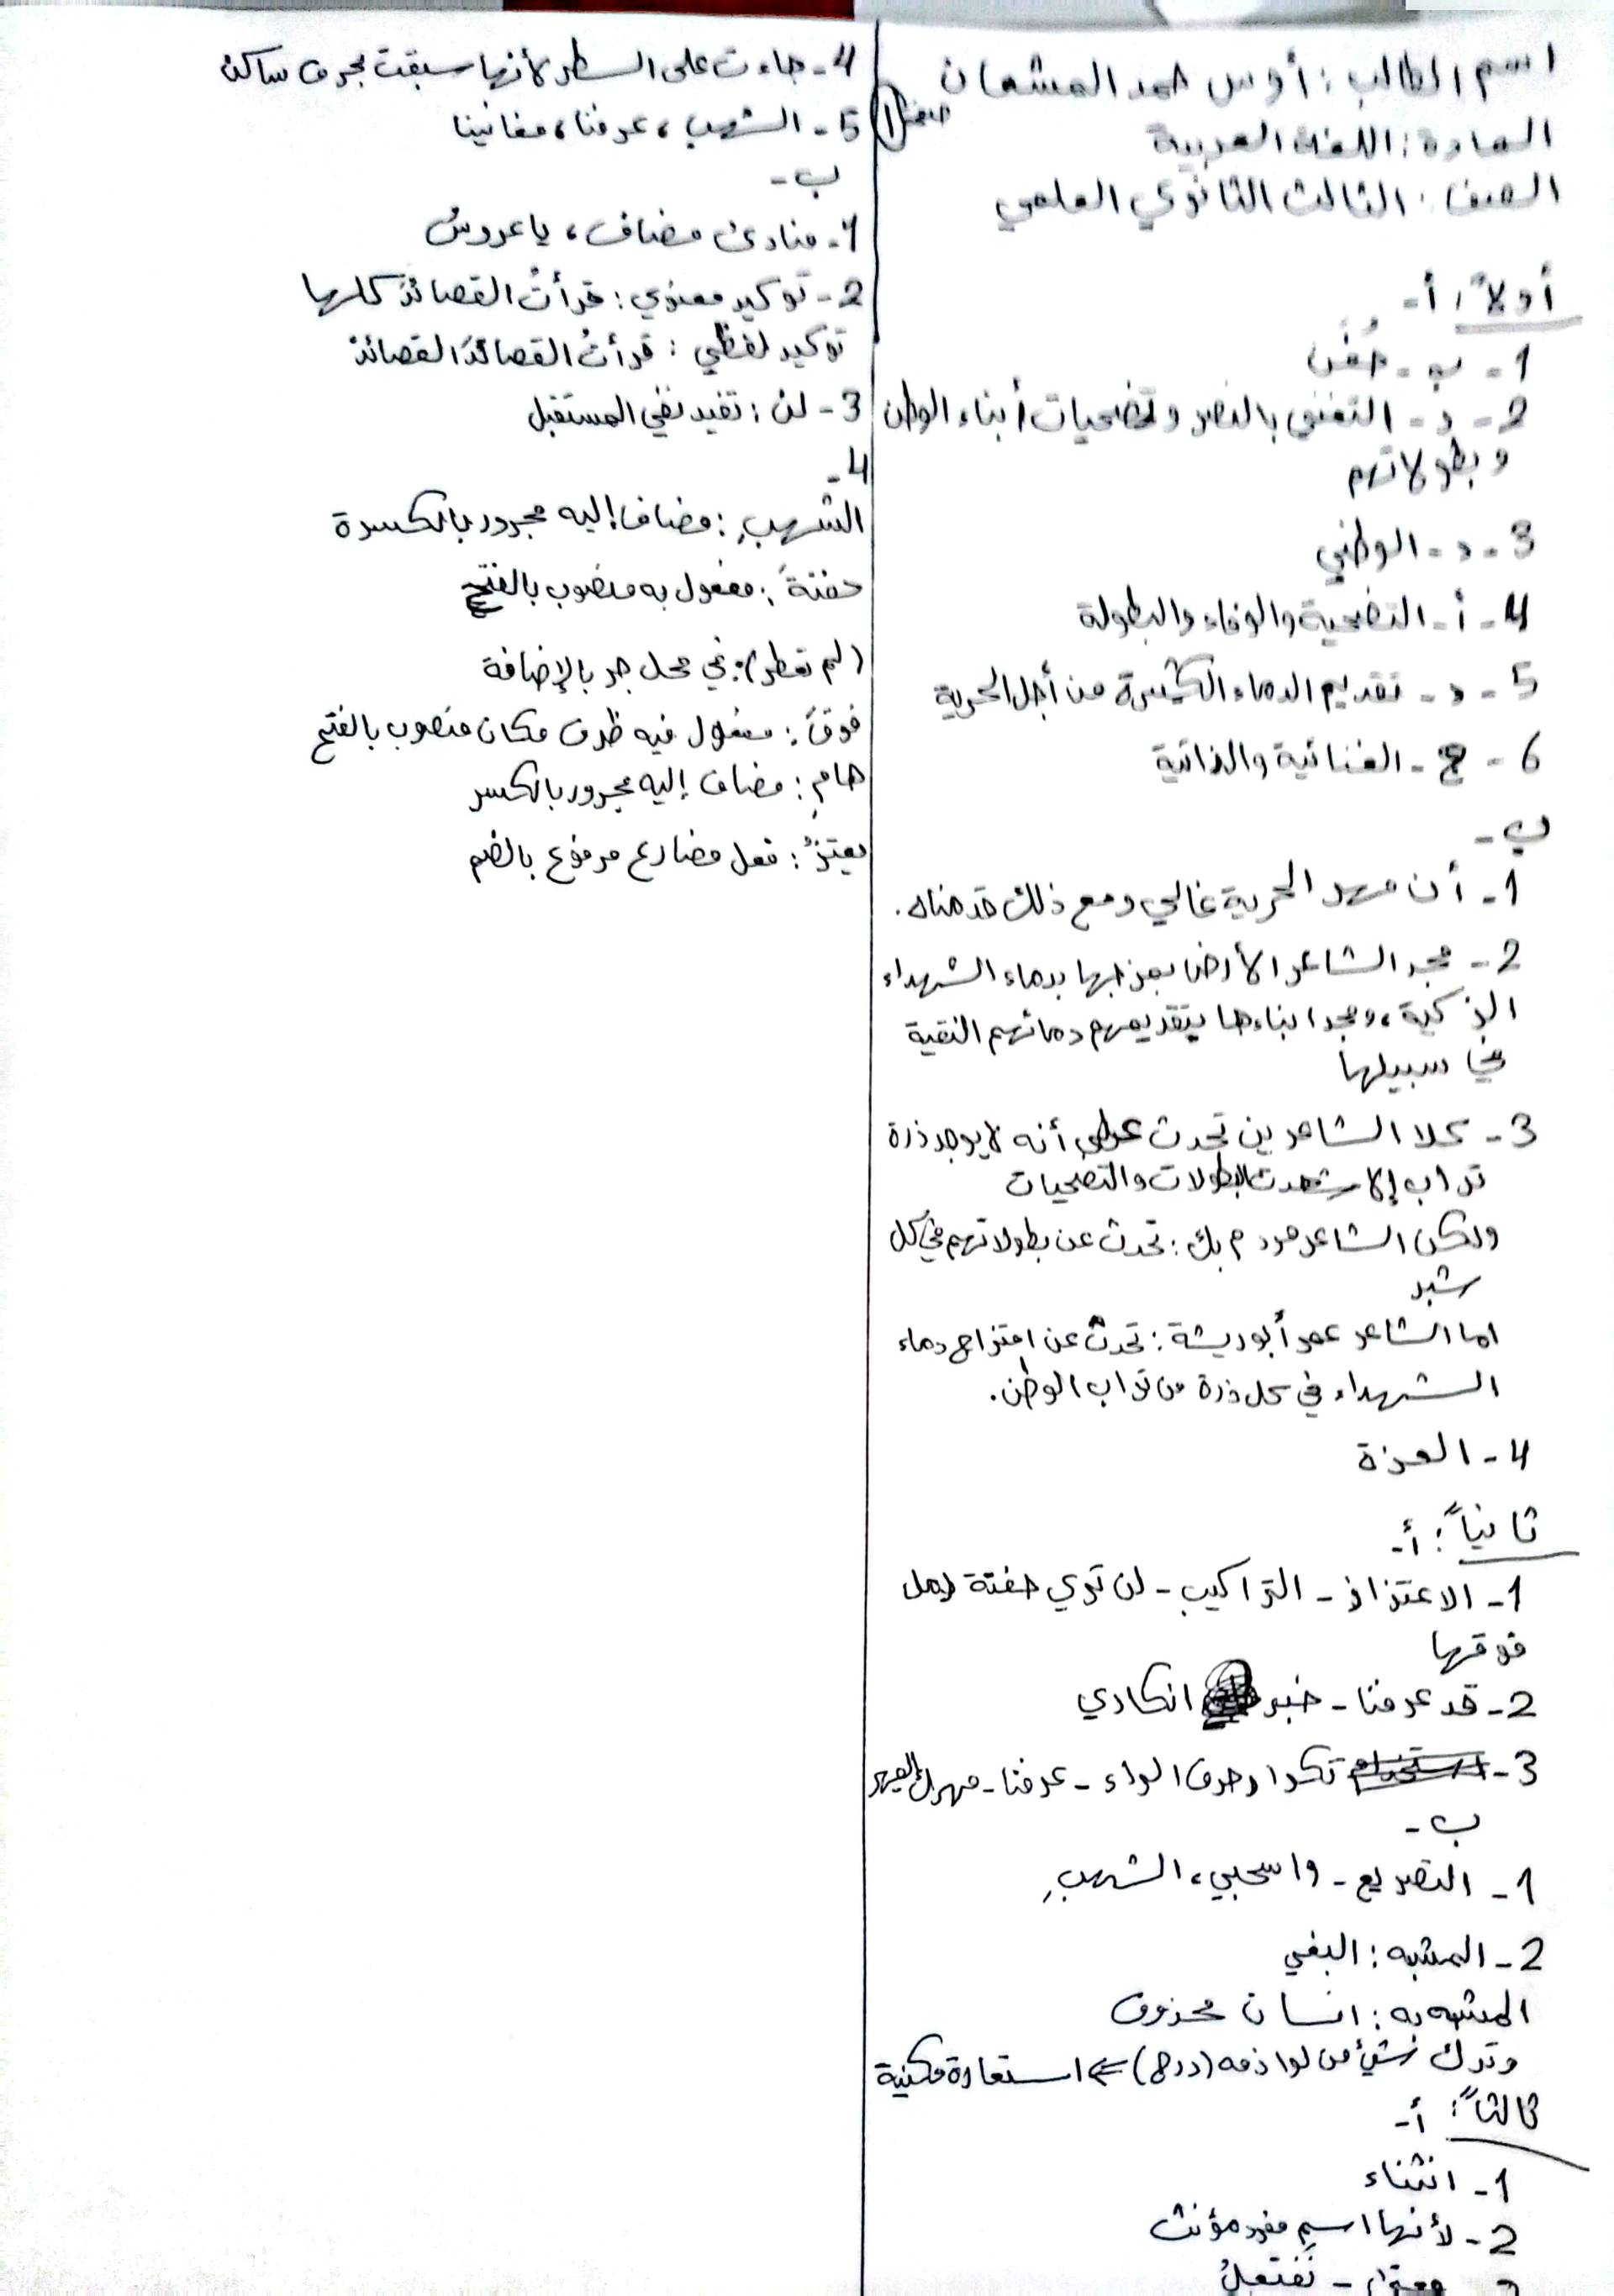 اسم الطالب: أوس حمد المشعان
صفحة 1
المادة: اللغة العربية
الصف: الثالث الثانوي العلمي
أولاً: أ-
1- ب-
2- د- التغني بالنصر وتضحيات أبناء الوطن
وبطولاتهم
3- د- الوطني
4- أ- التضحية والوفاء والبطولة
5- د- تقديم الدماء الكثيرة من أجل الحرية
6- ج- الغنائية والذاتية
ب-
1- أن مهر الحرية غالي ومع ذلك قدمناه.
2- مجد الشاعر الأرض بمزجها بدماء الشهداء
الزكية، ومجد ابناءها بتقديمهم دمائهم النقية
في سبيلها
3- كلا الشاعرين تحدث على أنه لا يوجد ذرة
تراب إلا شهدت البطولات والتضحيات
ولكن الشاعر مردم بك: تحدث عن بطولاتهم في كل
شبر
اما الشاعر عمر أبو ريشة: تحدث عن امتزاج دماء
الشهداء في كل ذرة من تراب الوطن.
4- العزة
ثانياً: أ-
1- الاعتزاز - التراكيب - لن تري حفنة رمل
فوقها
2- قد عرفنا - خبر انكاري
3- تكرار حرف الراء - عرفنا - مهرك المهر
ب-
1- التصريع - واسحبي، الشهبِ
2- المشبه: البغي
المشبه به: انسان محذوف
وترك شيئ من لوازمه (درج) ⇐ استعارة مكنية
ثالثاً: أ-
1- انثناء
2- لأنها اسم مفرد مؤنث
معتزل - نَفتعلُ
4- جاءت على السطر لأنها سبقت بحرف ساكن
5- الشهب، عرفنا، مغانينا
ب-
1- منادى مضاف، يا عروسَ
2- توكيد معنوي: قرأتُ القصائدَ كلها
توكيد لفظي: قرأتُ القصائدَ القصائدَ
3- لن: تفيد نفي المستقبل
4-
الشهبِ: مضاف إليه مجرور بالكسرة
حفنةَ: مفعول به منصوب بالفتح
(لم تعطر): في محل جر بالإضافة
فوقَ: مفعول فيه ظرف مكان منصوب بالفتح
هامِ: مضاف إليه مجرور بالكسر
يعتزُّ: فعل مضارع مرفوع بالضم